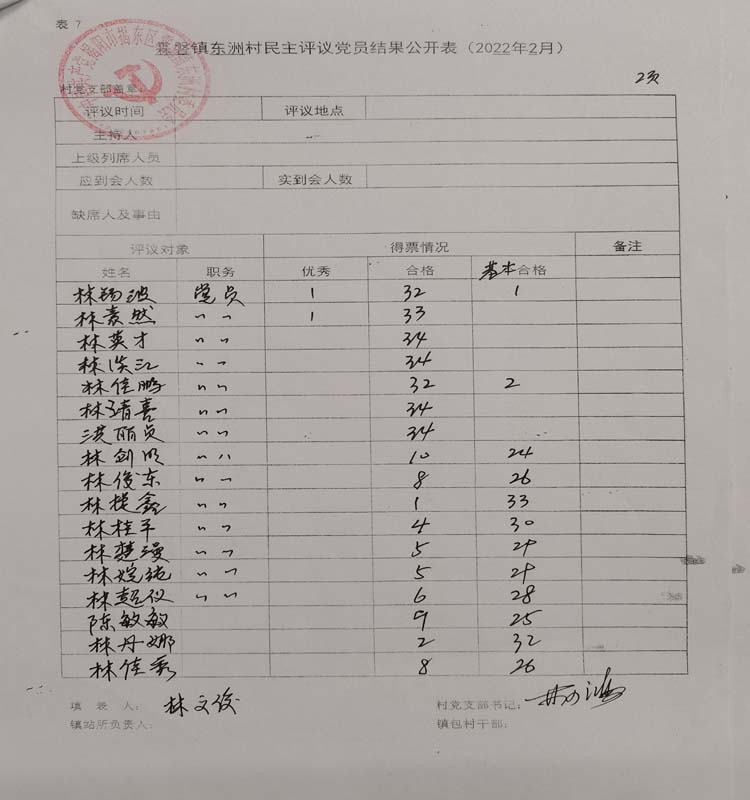 表 7
霖磐镇东洲村民主评议党员结果公开表（2022年2月）
2页
村党支部盖章：
评议时间 评议地点
主持人
上级列席人员
应到会人数 实到会人数
缺席人及事由
评议对象 得票情况 备注
姓名 职务 优秀 合格 基本合格
林 党员 1 32 1
林 然 〃 〃 1 33
林英才 〃 〃 34
林 江 〃 〃 34
林佳鹏 〃 〃 32 2
林靖喜 〃 〃 34
洪丽贞 〃 〃 34
林剑明 〃 〃 10 24
林俊东 〃 〃 8 26
林 鑫 〃 〃 1 33
林桂平 〃 〃 4 30
林楚漫 〃 〃 5 29
林婉纯 〃 〃 5 29
林超仪 〃 〃 6 28
陈敏敏 9 25
林丹娜 2 32
林佳 8 26
填表人： 林文俊 村党支部书记：
镇站所负责人： 镇包村干部：